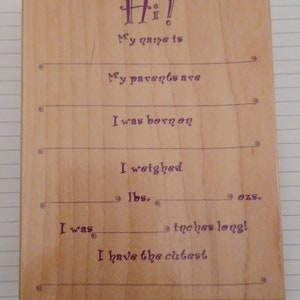 Hi!
My name is
My parents are
I was born on
I weighed
lbs. ozs.
I was inches long!
I have the cutest